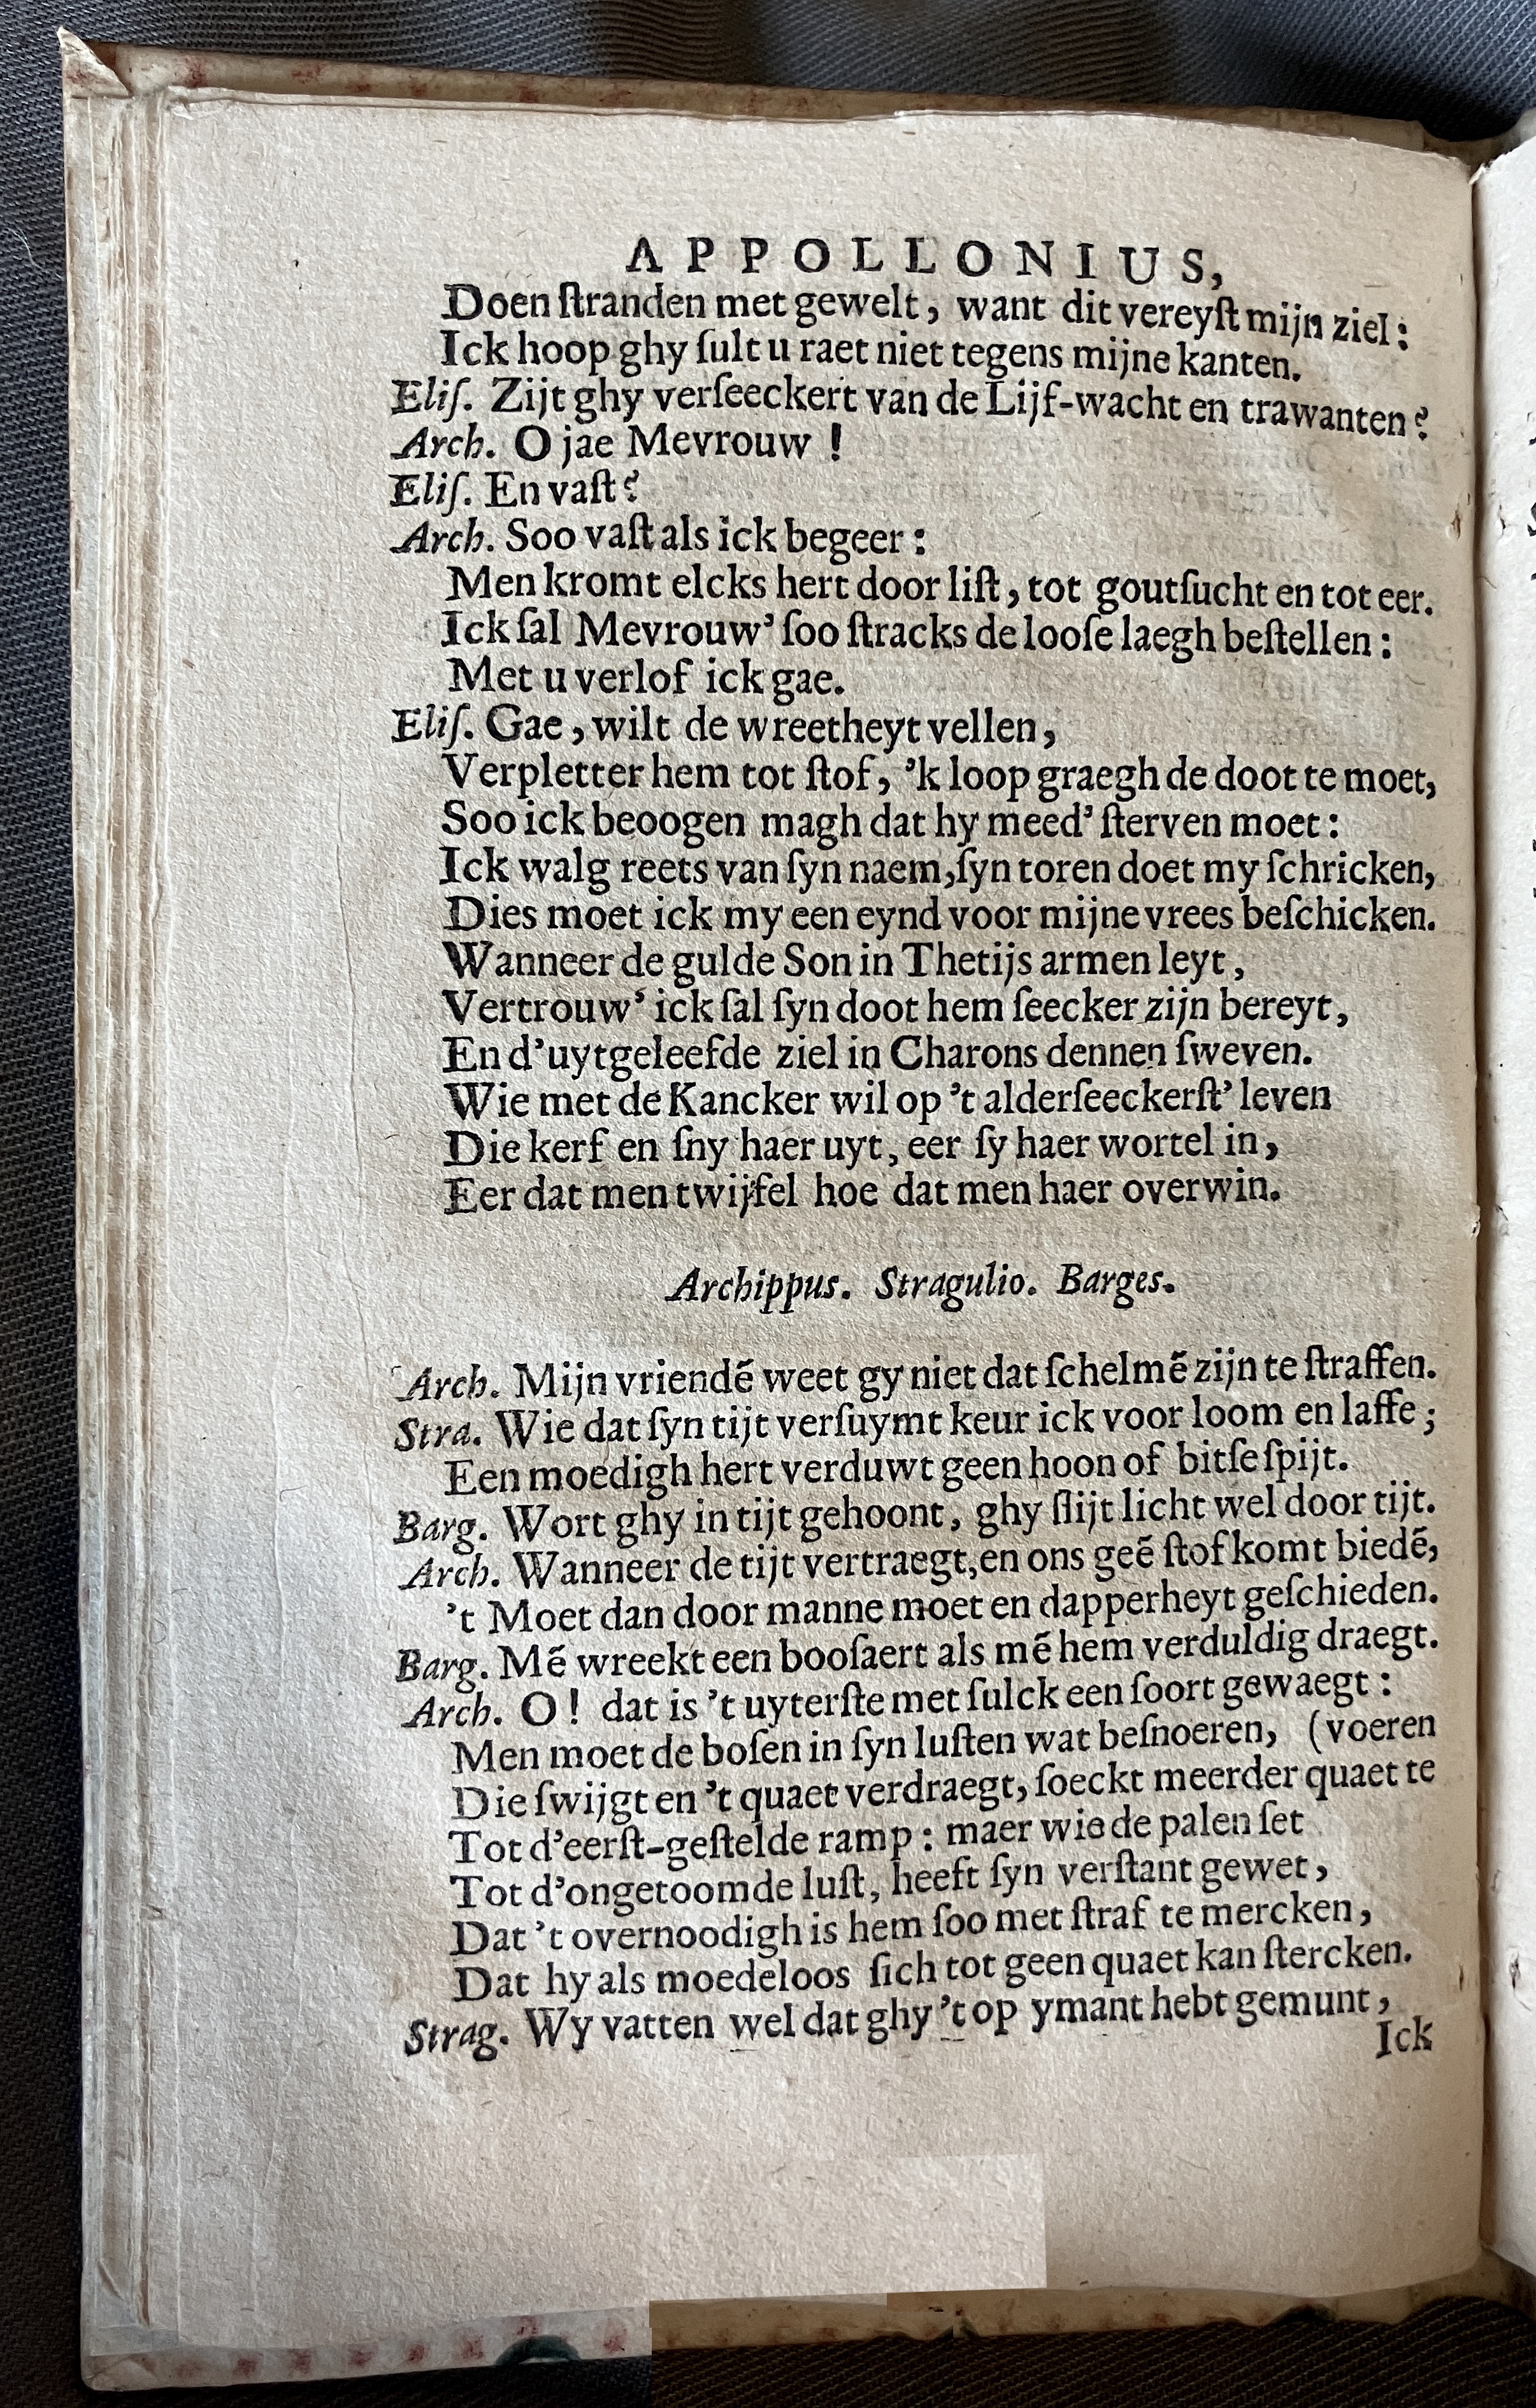 APPOLLONIUS,
Doen ſtranden met gewelt, want dit vereyſt mijn ziel:
Ick hoop ghy ſult u raet niet tegens mijne kanten.
Eliſ. Zijt ghy verſeeckert van de Lijf-wacht en trawanten?
Arch. O jae Mevrouw!
Eliſ. En vaſt?
Arch. Soo vaſt als ick begeer:
Men kromt elcks hert door liſt, tot goutſucht en tot eer.
Ick ſal Mevrouw' ſoo ſtracks de looſe laegh beſtellen:
Met u verlof ick gae.
Eliſ. Gae, wilt de wreetheyt vellen,
Verpletter hem tot ſtof, 'k loop graegh de doot te moet,
Soo ick beoogen magh dat hy meed' ſterven moet:
Ick walg reets van ſyn naem, ſyn toren doet my ſchricken,
Dies moet ick my een eynd voor mijne vrees beſchicken.
Wanneer de gulde Son in Thetijs armen leyt,
Vertrouw' ick ſal ſyn doot hem ſeecker zijn bereyt,
En d'uytgeleefde ziel in Charons dennen ſweven.
Wie met de Kancker wil op 't alderſeeckerſt' leven
Die kerf en ſny haer uyt, eer ſy haer wortel in,
Eer dat men twijfel hoe dat men haer overwin.
Archippus. Stragulio. Barges.
Arch. Mijn vriendẽ weet gy niet dat ſchelmẽ zijn te ſtraffen.
Stra. Wie dat ſyn tijt verſuymt keur ick voor loom en laffe;
Een moedigh hert verduwt geen hoon of bitſe ſpijt.
Barg. Wort ghy in tijt gehoont, ghy ſlijt licht wel door tijt.
Arch. Wanneer de tijt vertraegt, en ons geẽ ſtof komt biedẽ,
't Moet dan door manne moet en dapperheyt geſchieden.
Barg. Mẽ wreekt een booſaert als mẽ hem verduldig draegt.
Arch. O! dat is 't uyterſte met ſulck een ſoort gewaegt:
Men moet de boſen in ſyn luſten wat beſnoeren, (voeren
Die ſwijgt en 't quaet verdraegt, ſoeckt meerder quaet te
Tot d'eerſt-geſtelde ramp: maer wie de palen ſet
Tot d'ongetoomde luſt, heeft ſyn verſtant gewet,
Dat 't overnoodigh is hem ſoo met ſtraf te mercken,
Dat hy als moedeloos ſich tot geen quaet kan ſtercken.
Strag. Wy vatten wel dat ghy 't op ymant hebt gemunt,
Ick